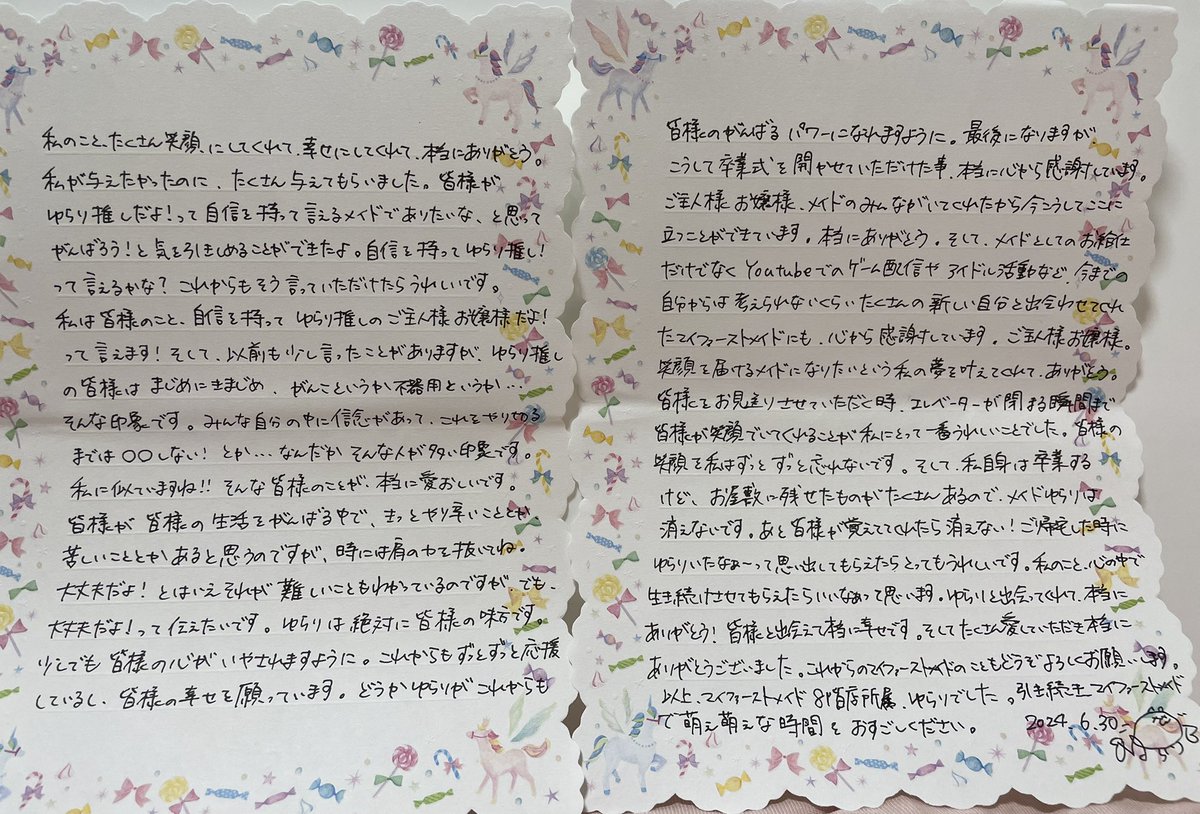 私のこと、たくさん笑顔にしてくれて、幸せにしてくれて、本当にありがとう。
私が与えたかったのに、たくさん与えてもらいました。皆様が
ゆらり推しだよ!って自信を持って言えるメイドでありたいな、と思って
がんばろう!と気を引きしめることができたよ。自信を持ってゆらり推し!
って言えるかな?これからもそう言っていただけたらうれしいです。
私は皆様のこと、自信を持って ゆらり推しのご主人様お嬢様だよ!
って言えます!そして、以前も少し言ったことがありますが、ゆらり推し
の皆様は まじめにきまじめ、がんこというか不器用というか…
そんな印象です。みんな自分の中に信念があって、これをやり切る
までは〇〇しない!とか…なんだか そんな人が多い印象です。
私に似ていますね!!そんな皆様のことが、本当に愛おしいです。
皆様が 皆様の生活をがんばる中で、きっとやり辛いこととか
苦しいこととかあると思うのですが、時には肩の力を抜いてね。
大丈夫だよ!とはいえそれが難しいこともわかっているのですが、でも、
大丈夫だよ!って伝えたいです。ゆらりは絶対に皆様の味方です。
少しでも 皆様の心がいやされますように。これからもずっとずっと応援
しているし、皆様の幸せを願っています。どうかゆらりがこれからも
皆様のがんばるパワーになれますように。最後になりますが
こうして卒業式を開かせていただけた事、本当に心から感謝しています。
ご主人様お嬢様、メイドのみんながいてくれたから今こうしてここに
立つことができています。本当にありがとう。そして、メイドとしてのお給仕
だけでなくYoutubeでのゲーム配信や アイドル活動など、今までの
自分からは考えられないくらいたくさんの新しい自分と出会わせてくれ
たマイファーストメイドにも、心から感謝しています。ご主人様お嬢様。
笑顔を届けるメイドになりたいという私の夢を叶えてくれて、ありがとう。
皆様をお見送りさせていただく時、エレベーターが閉まる瞬間まで
皆様が笑顔でいてくれることが私にとって一番うれしいことでした。皆様の
笑顔を私はずっとずっと忘れないです。そして、私自身は卒業する
けど、お屋敷に残せたものがたくさんあるので、メイドゆらりは
消えないです。あと皆様が覚えててくれたら消えない!ご帰宅した時に
ゆらりいたなぁ〜って思い出してもらえたらとってもうれしいです。私のこと、心の中で
生き続けさせてもらえたらいいなあって思います。ゆらりと出会ってくれて、本当に
ありがとう!皆様と出会えて本当に幸せです。そしてたくさん愛していただき本当に
ありがとうございました。これからのマイファーストメイドのこともどうぞよろしくお願いします。
以上、マイファーストメイド 81号店所属、ゆらりでした。引き続きマイファーストメイド
で萌え萌えな時間をおすごしください。 2024.6.30